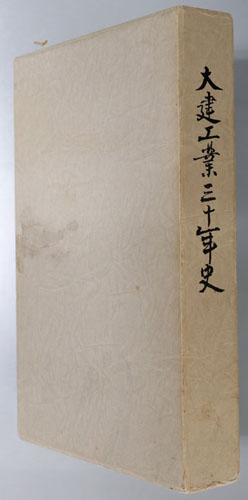 大建工業三十年史